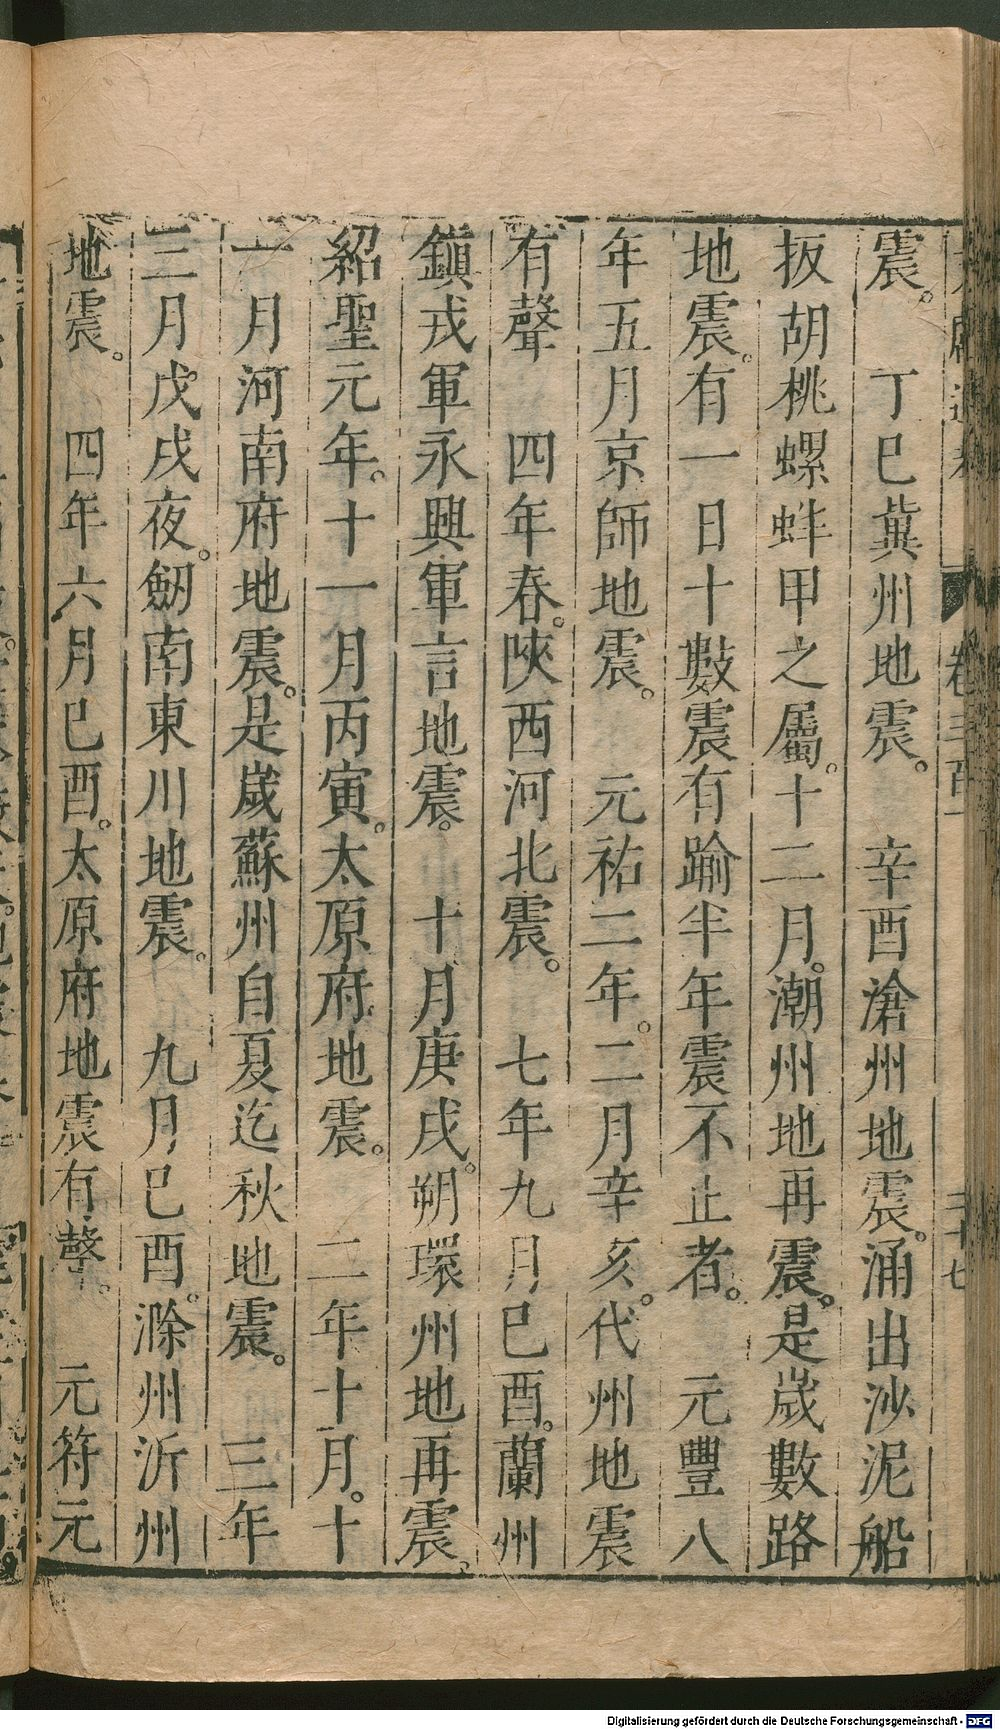 震。　丁巳冀州地震。　辛酉滄州地震。涌出沙泥船
扳胡桃螺蚌甲之屬。十二月。潮州地再震。是歲數路
地震。有一日十數震有踰半年震不止者。　元豐八
年五月京師地震。　元祐二年。二月辛亥。代州地震
有聲　四年春。陝西河北震。　七年九月巳酉。蘭州
鎮戎軍永興軍言地震。　十月庚戌。朔環州地再震。
紹聖元年。十一月丙寅。太原府地震。　二年十月。十
一月河南府地震。是歲蘇州自夏迄秋地震。　三年
三月戊戌夜。劒南東川地震。　九月巳酉。滁州沂州
地震。　四年六月巳酉。太原府地震有聲。　元符元
卷三百一
二十七
Digitalisierung gefördert durch die Deutsche Forschungsgemeinschaft - DFG